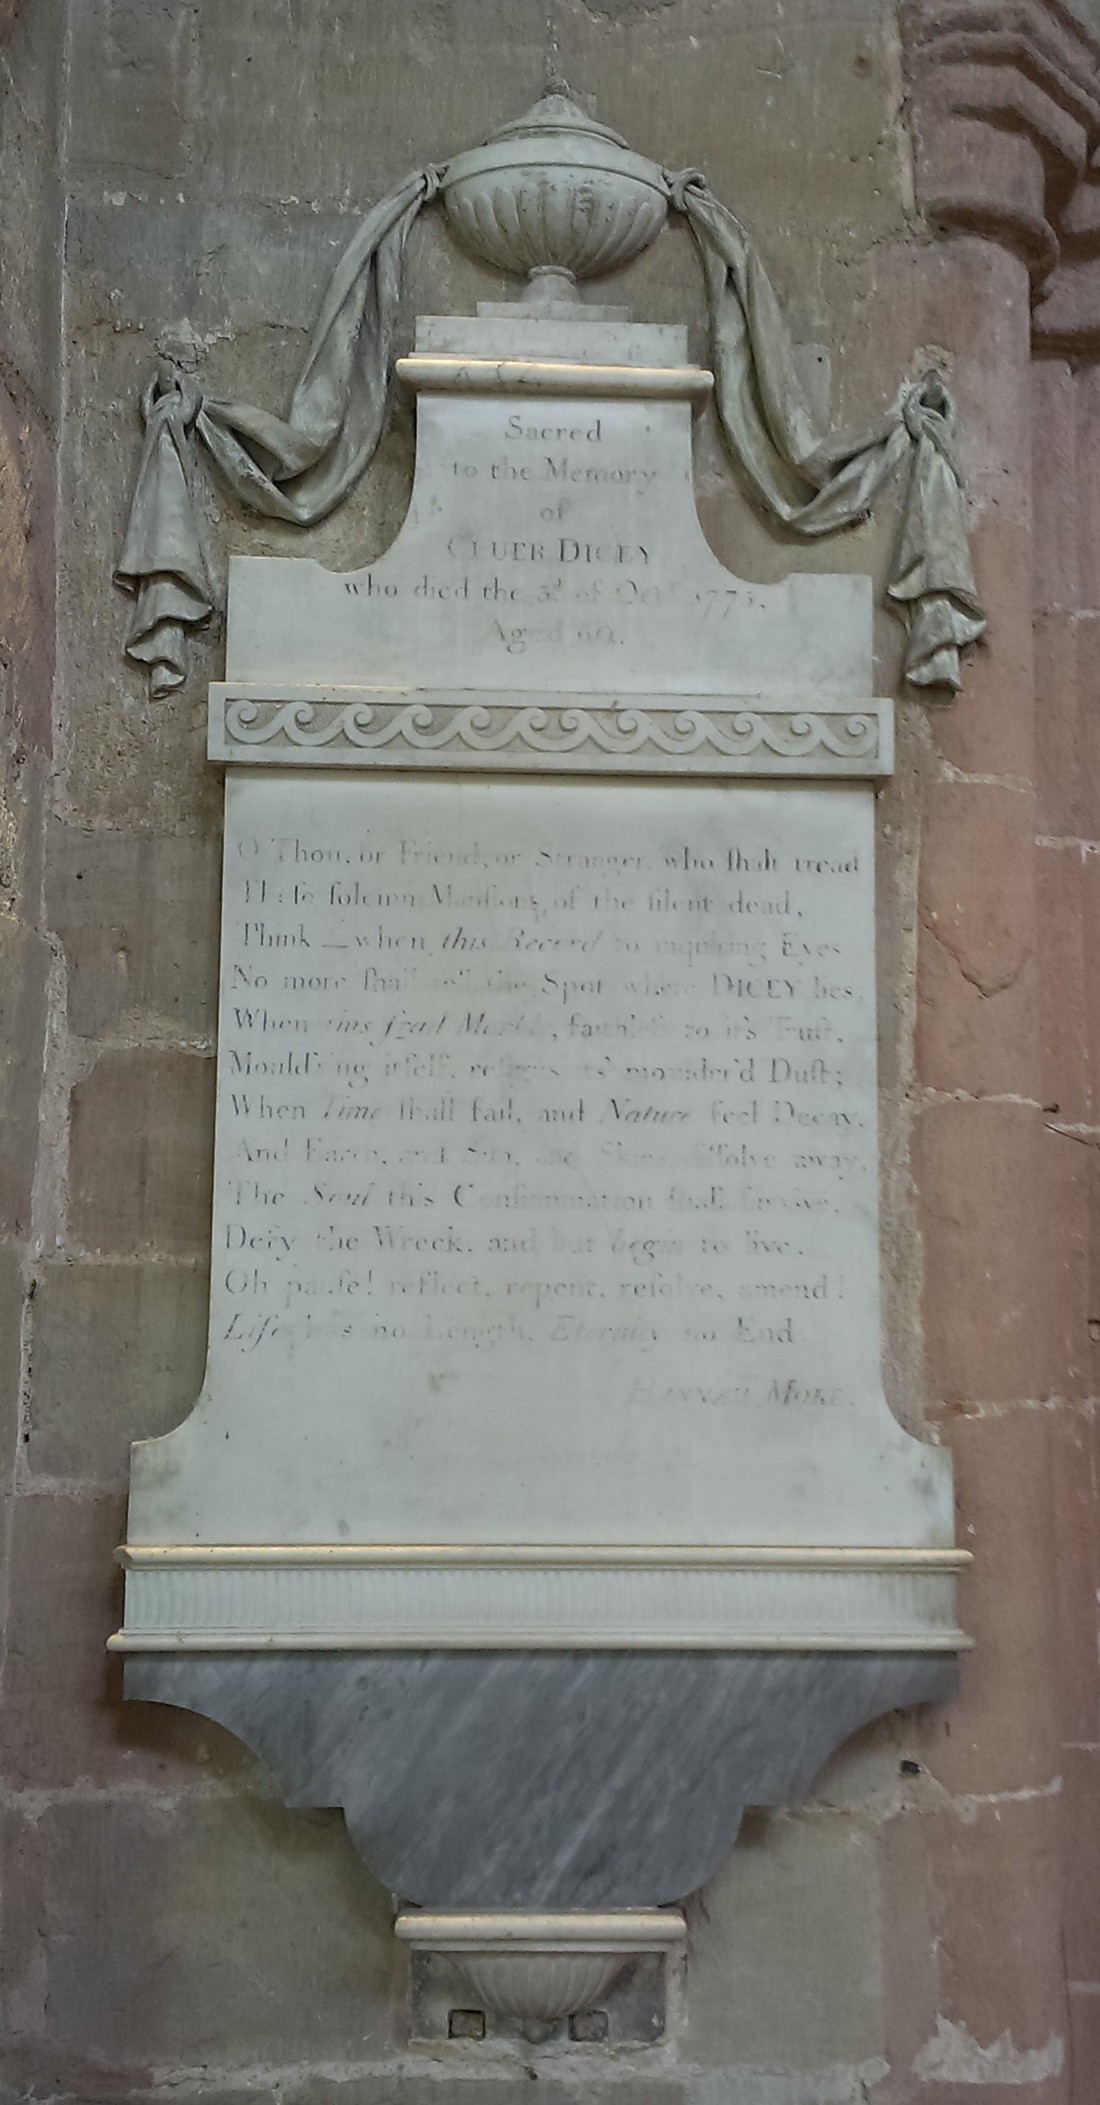 Sacred
to the Memory
of
CLUER DICEY
who died the 3d of Octr 1775.
Aged 60.
O Thou, or Friend, or Stranger, who ſhalt tread
Theſe ſolemn Manſions of the ſilent dead,
Think — when this Record to inquiring Eyes
No more ſhall tell the Spot where DICEY lies,
When this frail Marble, faithleſs to it's Truſt,
Mould'ring itſelf, reſigns its' moulder'd Duſt;
When Time ſhall fail, and Nature feel Decay,
And Earth, and Sun, and Skies diſſolve away,
The Soul this Conſummation ſhall ſurvive,
Defy the Wreck, and but begin to live.
Oh pauſe! reflect, repent, reſolve, amend!
Life has no Length, Eternity no End.
HANNAH MORE.